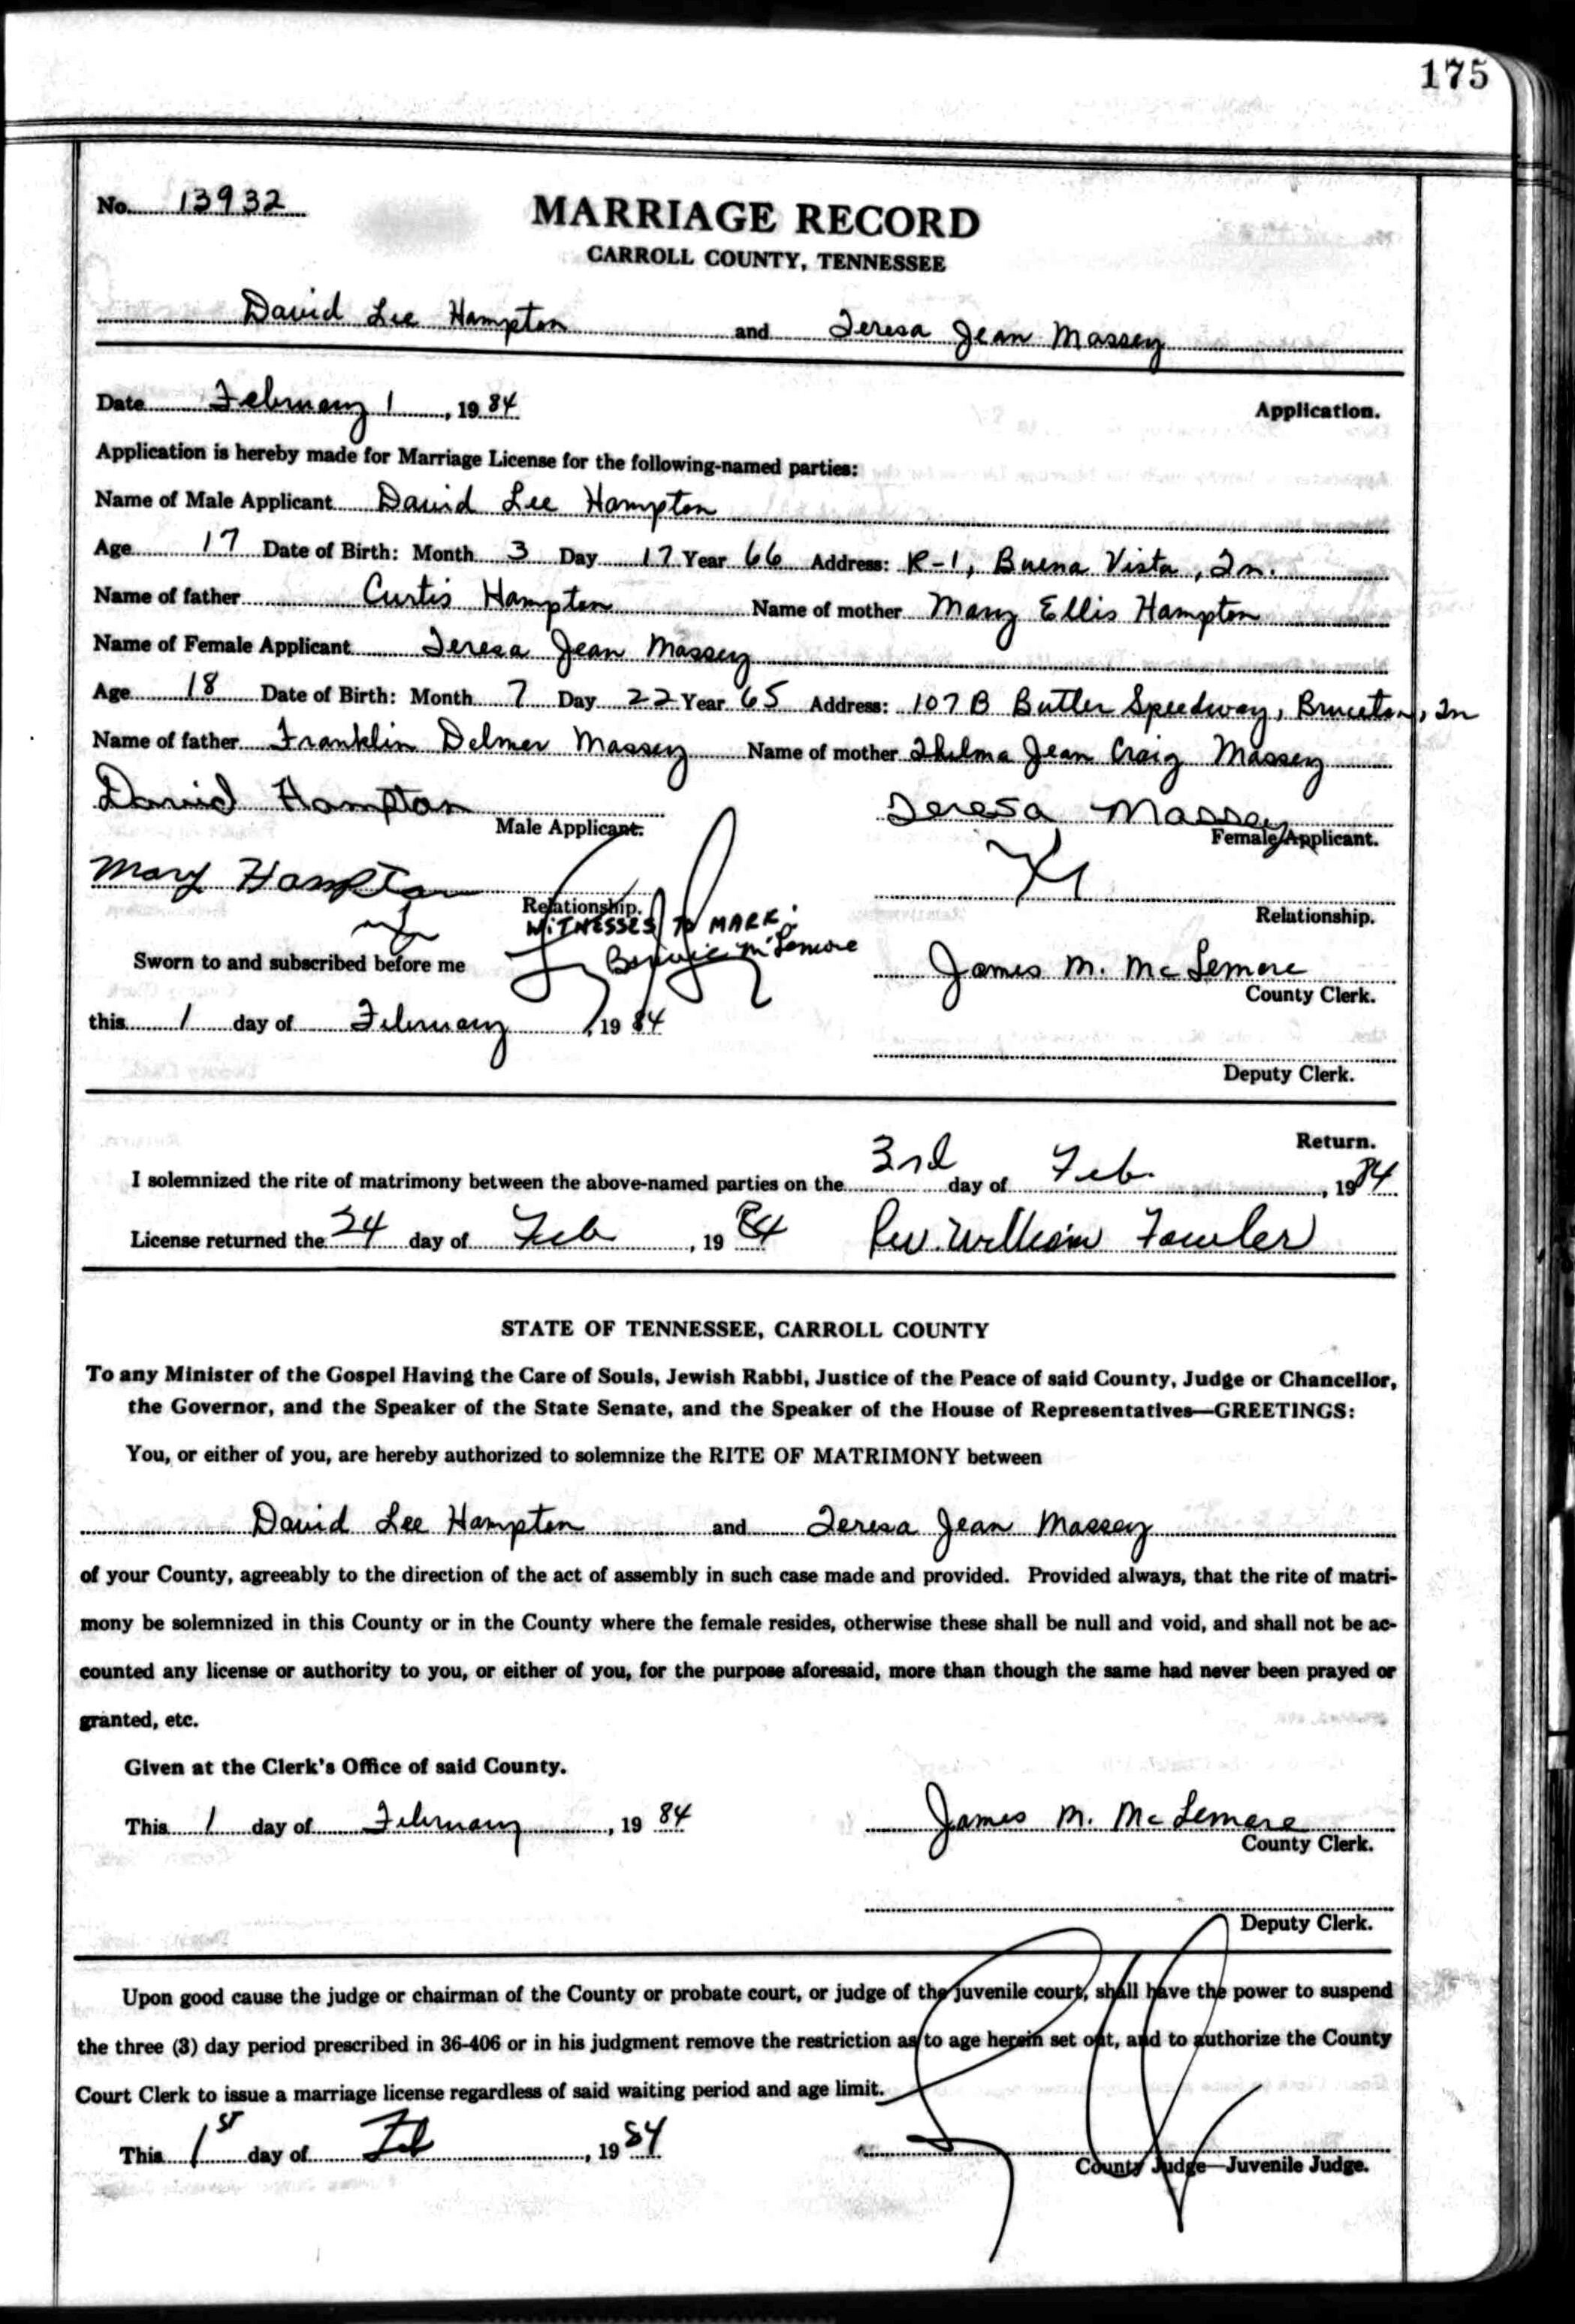 175
No. 13932
MARRIAGE RECORD
CARROLL COUNTY, TENNESSEE
David Lee Hampton and Teresa Jean Massey
Date February 1, 1984 Application.
Application is hereby made for Marriage License for the following-named parties:
Name of Male Applicant David Lee Hampton
Age 17 Date of Birth: Month 3 Day 17 Year 66 Address: R-1, Buena Vista, Tn.
Name of father Curtis Hampton Name of mother Mary Ellis Hampton
Name of Female Applicant Teresa Jean Massey
Age 18 Date of Birth: Month 7 Day 22 Year 65 Address: 107 B Butler Speedway, Bruceton, Tn
Name of father Franklin Delmer Massey Name of mother Thelma Jean Craig Massey
David Hampton Teresa Massey
Male Applicant. Female Applicant.
Mary Hampton
Relationship. Relationship.
WITNESSES TO MARK:
Bonnie McLemore
Sworn to and subscribed before me James M. McLemore
County Clerk.
this 1 day of February, 1984
Deputy Clerk.
Return.
I solemnized the rite of matrimony between the above-named parties on the 3rd day of Feb., 1984
License returned the 24 day of Feb, 1984 Rev. William Fowler
STATE OF TENNESSEE, CARROLL COUNTY
To any Minister of the Gospel Having the Care of Souls, Jewish Rabbi, Justice of the Peace of said County, Judge or Chancellor,
the Governor, and the Speaker of the State Senate, and the Speaker of the House of Representatives—GREETINGS:
You, or either of you, are hereby authorized to solemnize the RITE OF MATRIMONY between
David Lee Hampton and Teresa Jean Massey
of your County, agreeably to the direction of the act of assembly in such case made and provided. Provided always, that the rite of matri-
mony be solemnized in this County or in the County where the female resides, otherwise these shall be null and void, and shall not be ac-
counted any license or authority to you, or either of you, for the purpose aforesaid, more than though the same had never been prayed or
granted, etc.
Given at the Clerk's Office of said County.
This 1 day of February, 1984 James M. McLemore
County Clerk.
Deputy Clerk.
Upon good cause the judge or chairman of the County or probate court, or judge of the juvenile court, shall have the power to suspend
the three (3) day period prescribed in 36-406 or in his judgment remove the restriction as to age herein set out, and to authorize the County
Court Clerk to issue a marriage license regardless of said waiting period and age limit.
This 1st day of Feb, 1984
County Judge—Juvenile Judge.